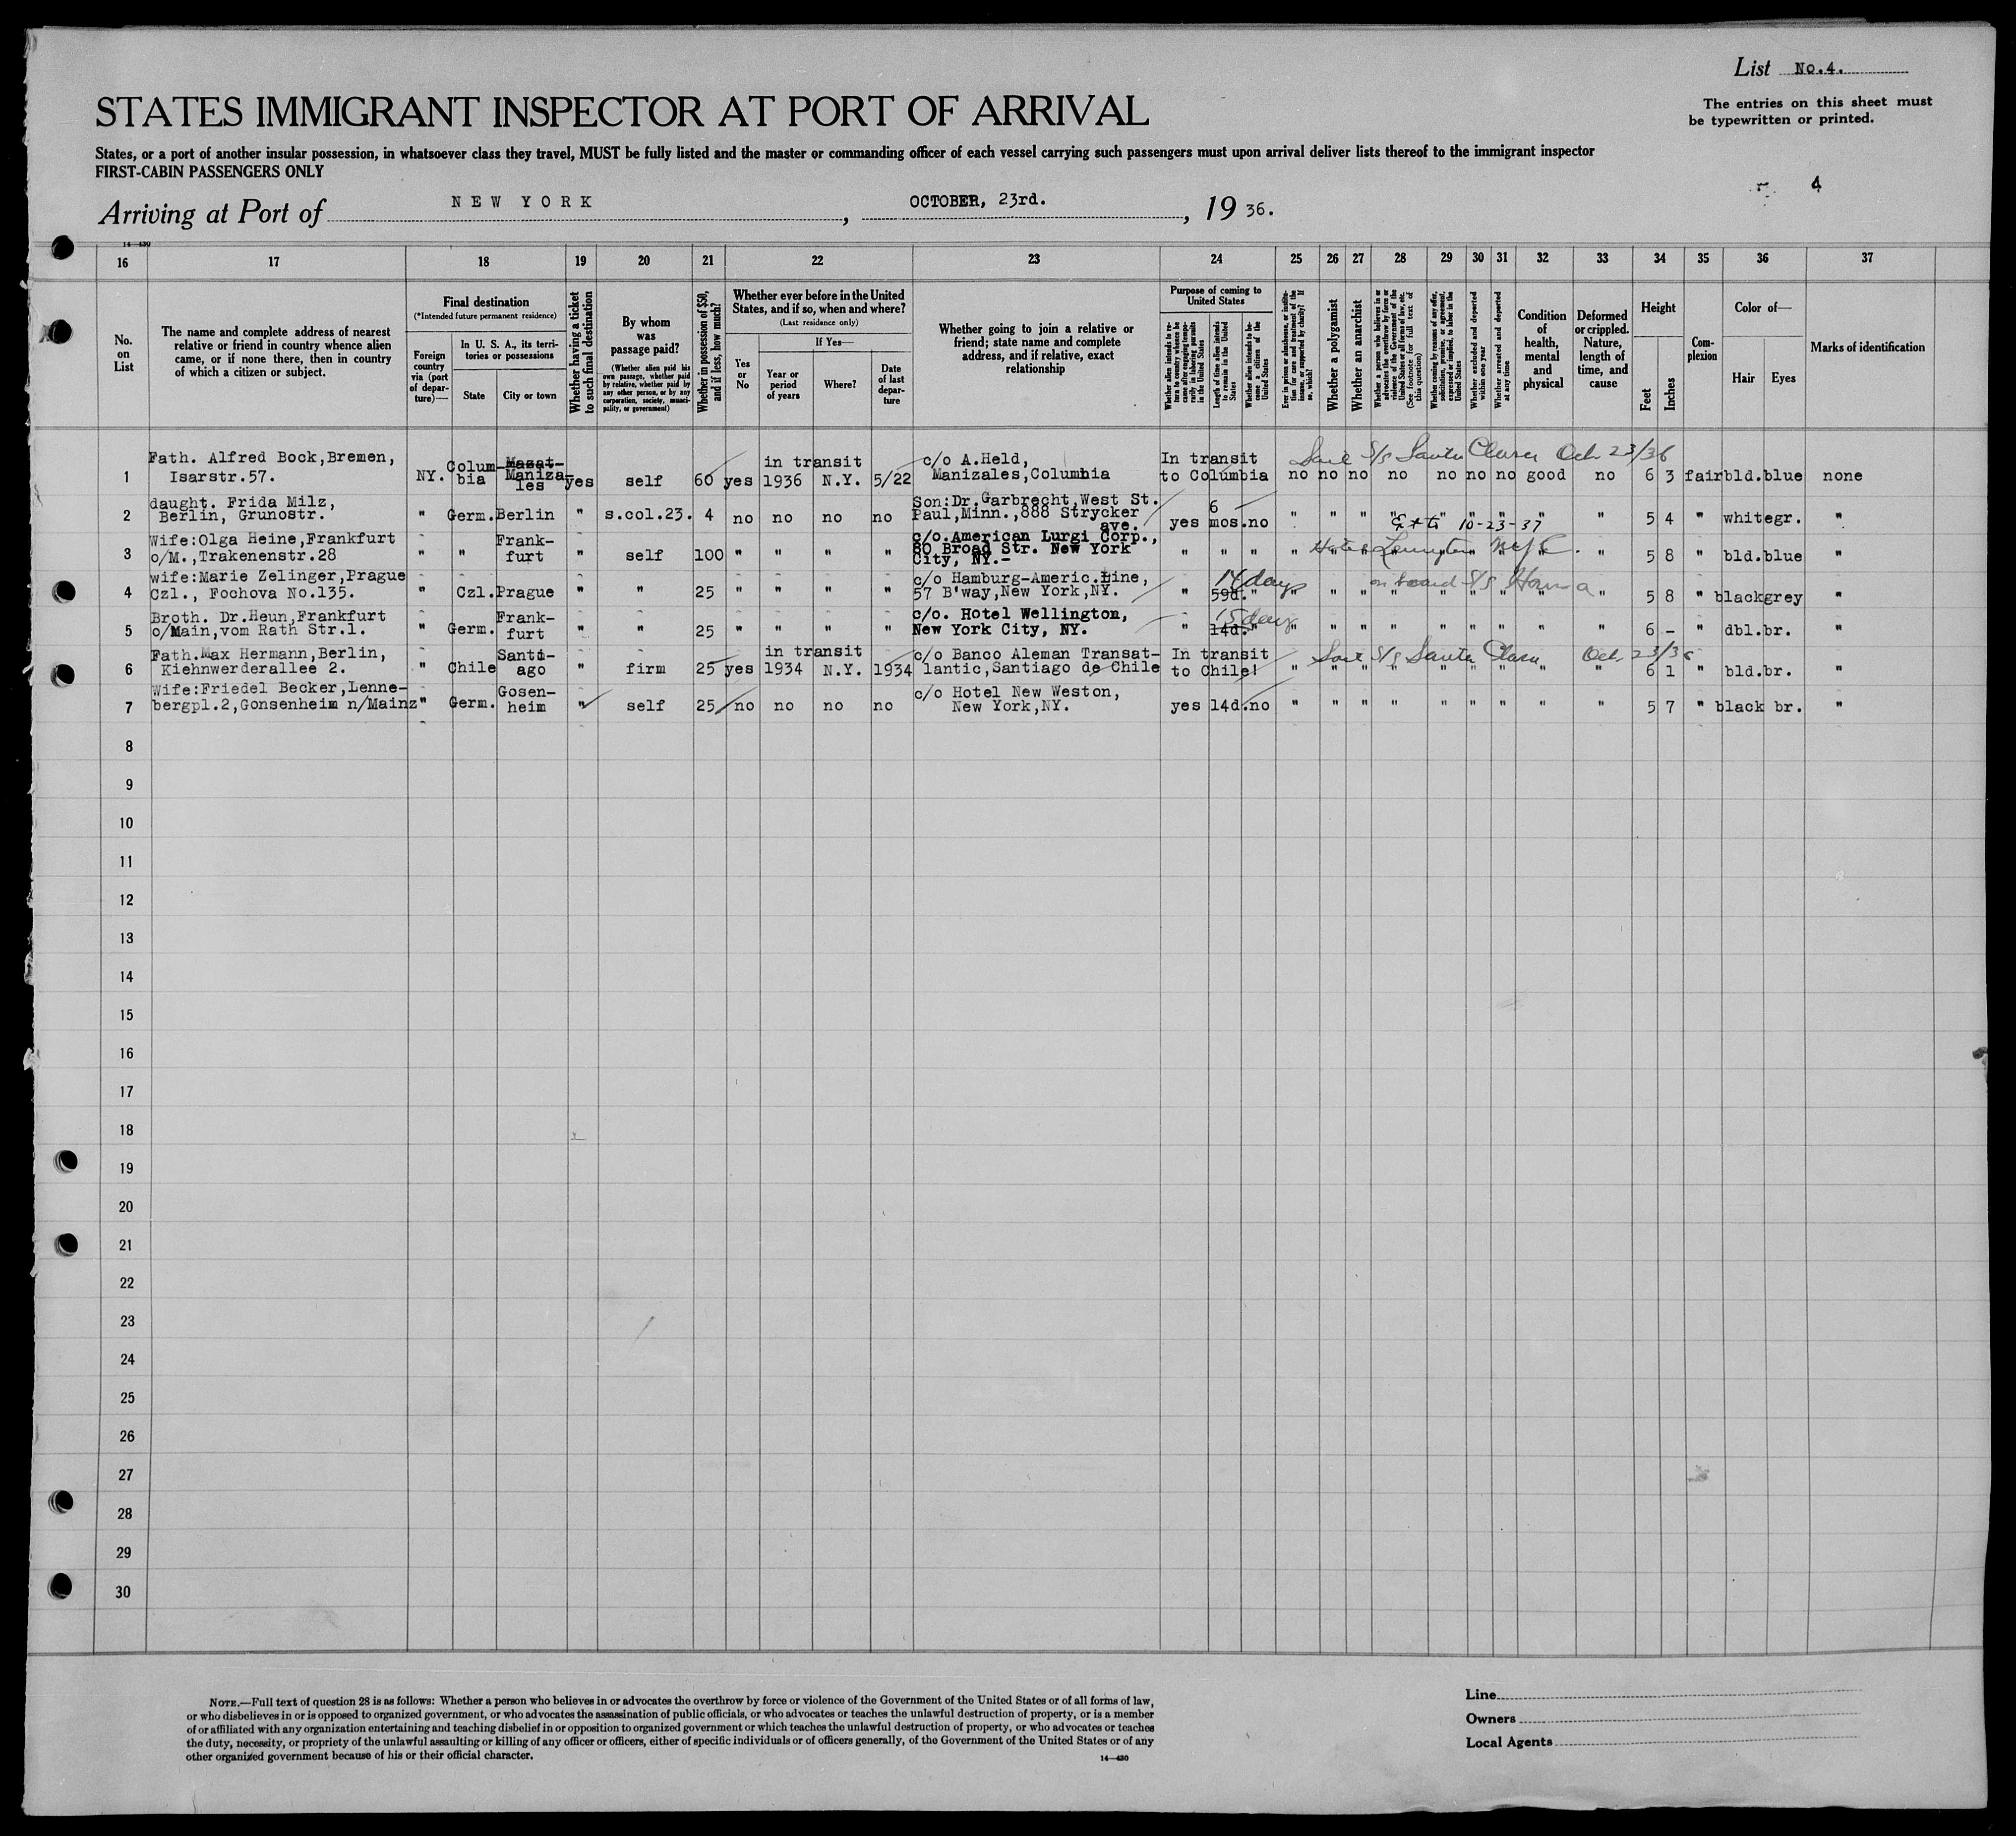 List No.4.
STATES IMMIGRANT INSPECTOR AT PORT OF ARRIVAL
The entries on this sheet must
be typewritten or printed.
States, or a port of another insular possession, in whatsoever class they travel, MUST be fully listed and the master or commanding officer of each vessel carrying such passengers must upon arrival deliver lists thereof to the immigrant inspector
FIRST-CABIN PASSENGERS ONLY
4
Arriving at Port of NEW YORK, OCTOBER, 23rd., 19 36.
14—430
16 17 18 19 20 21 22 23 24 25 26 27 28 29 30 31 32 33 34 35 36 37
No. on List
The name and complete address of nearest relative or friend in country whence alien came, or if none there, then in country of which a citizen or subject.
Final destination
(*Intended future permanent residence)
Foreign country via (port of departure)—
In U. S. A., its territories or possessions
State
City or town
Whether having a ticket to such final destination
By whom was passage paid?
(Whether alien paid his own passage, whether paid by relative, whether paid by any other person, or by any corporation, society, municipality, or government)
Whether in possession of $50, and if less, how much?
Whether ever before in the United States, and if so, when and where?
(Last residence only)
Yes or No
If Yes—
Year or period of years
Where?
Date of last departure
Whether going to join a relative or friend; state name and complete address, and if relative, exact relationship
Purpose of coming to United States
Whether alien intends to return to country whence he came after engaging temporarily in laboring pursuits in the United States
Length of time alien intends to remain in the United States
Whether alien intends to become a citizen of the United States
Ever in prison or almshouse, or institution for care and treatment of the insane, or supported by charity? If so, which?
Whether a polygamist
Whether an anarchist
Whether a person who believes in or advocates the overthrow by force or violence of the Government of the United States or all forms of law, etc. (See footnote for full text of this question)
Whether coming by reasons of any offer, solicitation, promise, or agreement, expressed or implied, to labor in the United States
Whether excluded and deported within one year
Whether arrested and deported at any time
Condition of health, mental and physical
Deformed or crippled. Nature, length of time, and cause
Height
Feet
Inches
Complexion
Color of—
Hair
Eyes
Marks of identification
Sail S/s Santa Clara Oct 23/36
1 Fath. Alfred Bock,Bremen, Isarstr.57. NY. Columbia Masat- Manizales yes self 60 yes in transit 1936 N.Y. 5/22 c/o A.Held, Manizales,Columbia In transit to Columbia no no no no no no no good no 6 3 fair bld. blue none
2 daught. Frida Milz, Berlin, Grunostr. " Germ. Berlin " s.col.23. 4 no no no no Son:Dr.Garbrecht,West St. Paul,Minn.,888 Strycker ave. yes 6 mos. no " " " " " " " " " 5 4 " white gr. "
10-23-37
3 Wife:Olga Heine,Frankfurt o/M.,Trakenenstr.28 " " Frankfurt " self 100 " " " " c/o.American Lurgi Corp., 80 Broad Str. New York City, NY.- " " " " " " " " " " " " 5 8 " bld. blue "
Hotel Lexington NYC.
4 wife:Marie Zelinger,Prague Czl., Fochova No.135. " Czl. Prague " " 25 " " " " c/o Hamburg-Americ.Line, 57 B'way,New York,NY. " 59d. 14 days " " " " " " " " " " 5 8 " black grey "
on board S/s Hansa
5 Broth. Dr.Heun,Frankfurt o/Main,vom Rath Str.1. " Germ. Frankfurt " " 25 " " " " c/o. Hotel Wellington, New York City, NY. " 14d. 15 days " " " " " " " " " " 6 - " dbl. br. "
Sail S/s Santa Clara Oct. 23/36
6 Fath.Max Hermann,Berlin, Kiehnwerderallee 2. " Chile Santiago " firm 25 yes in transit 1934 N.Y. 1934 c/o Banco Aleman Transatlantic,Santiago de Chile In transit to Chile! " " " " " " " " " 6 1 " bld. br. "
7 Wife:Friedel Becker,Lennebergpl.2,Gonsenheim n/Mainz " Germ. Gosenheim " self 25 no no no no c/o Hotel New Weston, New York,NY. yes 14d. no " " " " " " " " " 5 7 " black br. "
8
9
10
11
12
13
14
15
16
17
18
19
20
21
22
23
24
25
26
27
28
29
30
NOTE.—Full text of question 28 is as follows: Whether a person who believes in or advocates the overthrow by force or violence of the Government of the United States or of all forms of law,
or who disbelieves in or is opposed to organized government, or who advocates the assassination of public officials, or who advocates or teaches the unlawful destruction of property, or is a member
of or affiliated with any organization entertaining and teaching disbelief in or opposition to organized government or which teaches the unlawful destruction of property, or who advocates or teaches
the duty, necessity, or propriety of the unlawful assaulting or killing of any officer or officers, either of specific individuals or of officers generally, of the Government of the United States or of any
other organized government because of his or their official character.
14—430
Line
Owners
Local Agents